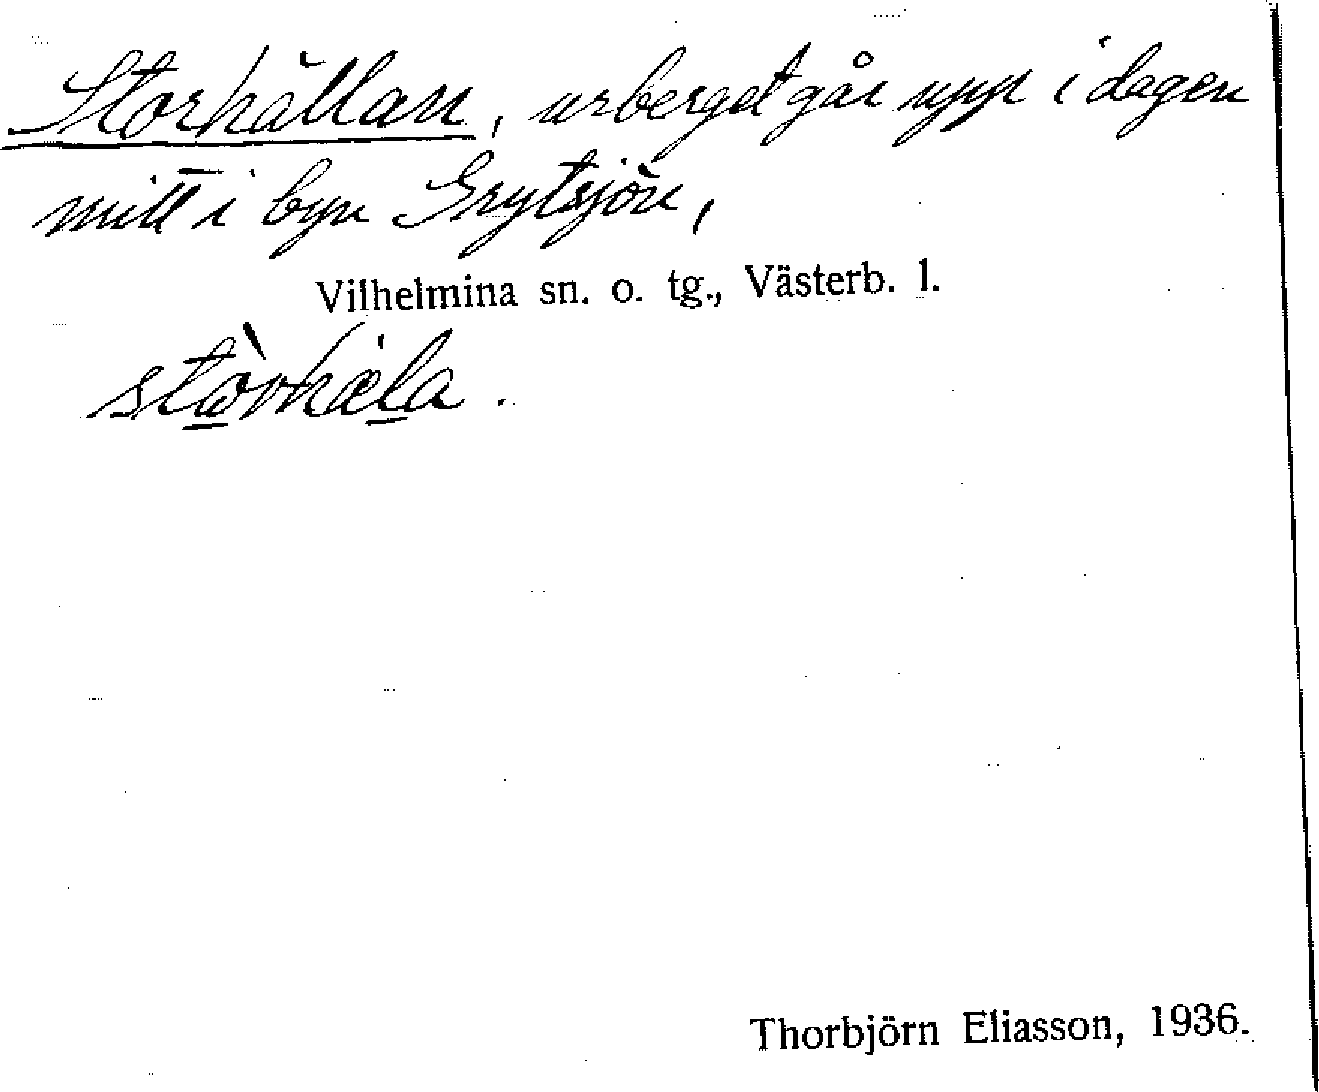 Storhällan, urberget går upp i dagen
mitt i byn Grytsjön,
Vilhelmina sn. o. tg., Västerb. l.
Thorbjörn Eliasson, 1936.